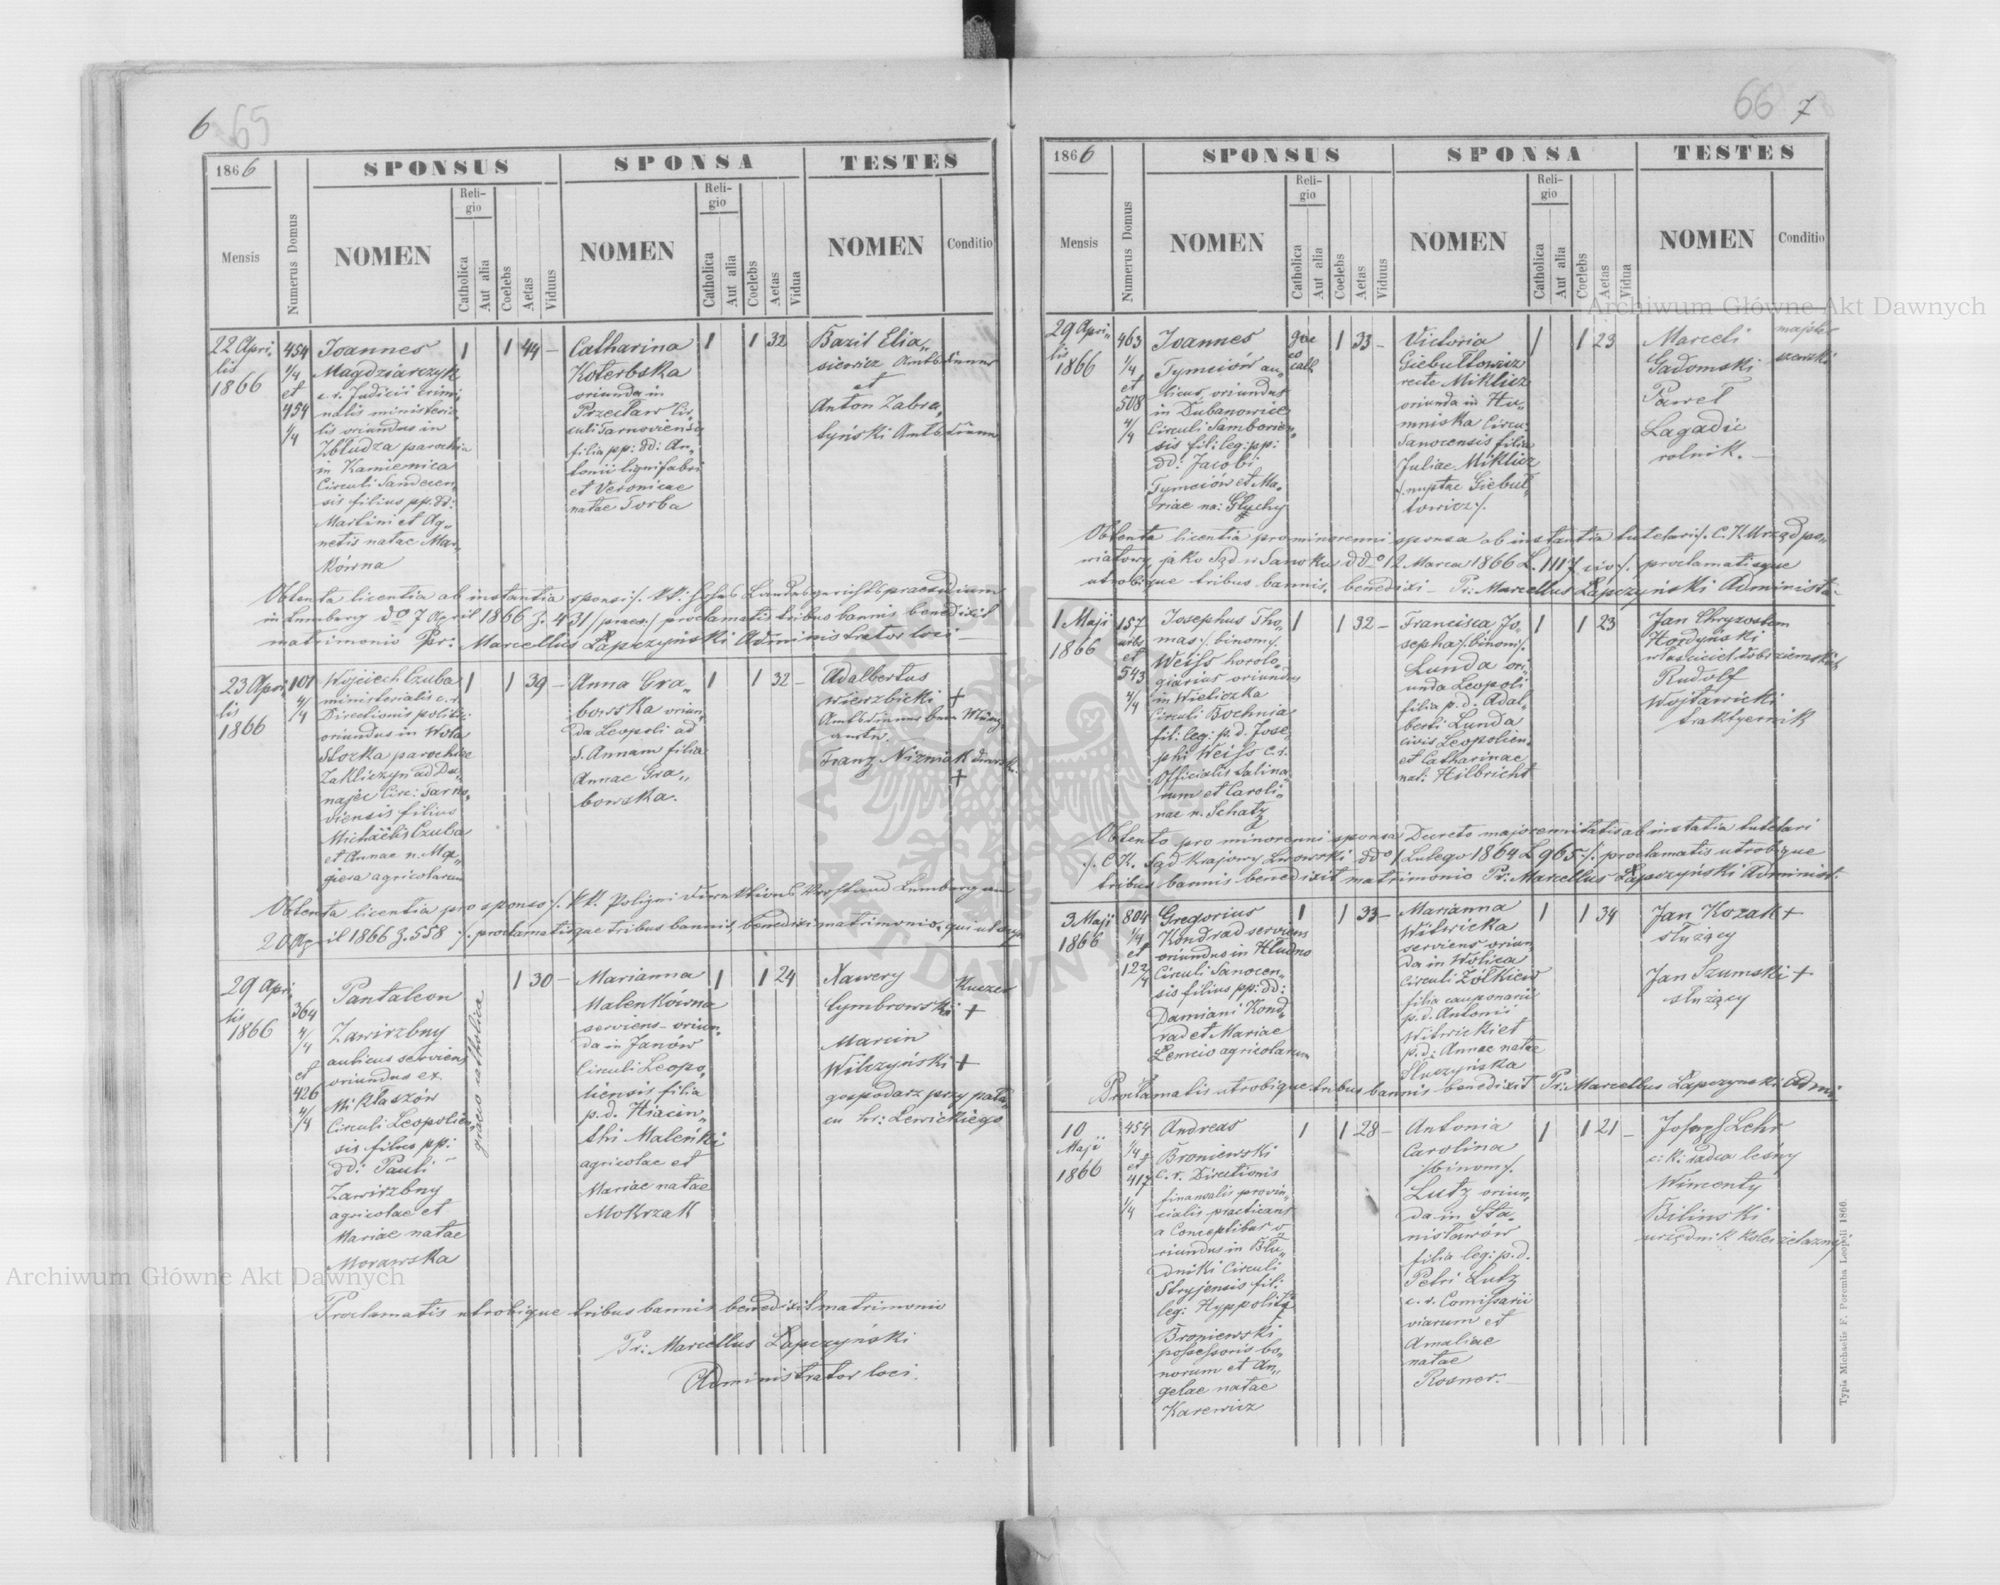 6 65
1866
SPONSUS
SPONSA
TESTES
Mensis
Numerus Domus
NOMEN
Religio
Catholica
Aut alia
Coelebs
Aetas
Viduus
NOMEN
Religio
Catholica
Aut alia
Coelebs
Aetas
Vidua
NOMEN
Conditio
22 Apri,,
lis
1866
454
1/4
et
454
1/4
Joannes
Magdziarczyk
c. r. Judicii Crimi
nalis ministeria
lis oriundus in
Zbludza parochia
in Kamienica
Circuli Sandecen,,
sis filius pp. dd:
Martini et Ag,,
netis natae Mar,,
kówna
1
1
44 –
Catharina
Koterbska
oriunda in
Przecław Cir,,
culi Tarnoviensis
filia pp: dd: An,,
tonii lignifabri
et Veronicae
natae Torba
1
1
32
Bazil Elia,,
siewicz Amtsdiener
et
Anton Zabra,,
tyński Amtsdiener
Obtenta licentia ab instantia sponsi /. kk: hohes Landesgerichts praesidium
in Lemberg ddo 7 April 1866 Z. 431/praes:/ proclamatis tribus bannis benedixit
matrimonio Pr: Marcellus Łapczyński Administrator loci –
23 Apri
lis
1866
101
4/4
Wojciech Czuba
ministerialis c. r.
Directionis politic
oriundus in Wola
Stozka parochiae
Zakliczyn ad Du,,
najec Circ: Tarno,,
viensis filius
Michaelis Czuba
et Annae n. Ma,,
giera agricolarum
1
1
39 –
Anna Gra,,
bowska oriun,,
da Leopoli ad
S. Annam filia
Annae Gra,,
bowska.
1
1
32 –
Adalbertus
Wierzbicki +
Amtsdiener beim
Franz Nizniak
+
Obtenta licentia pro sponso /. kk. Polizei Direktions Lemberg
20 April 1866 Z. 558 /. proclamatisque tribus bannis benedixi matrimonio, qui ut supra
29 Apri,,
lis
1866
364
4/4
et
426
4/4
Pantaleon
Zawirzbny
aulicus serviens
oriundus ex
Mikłaszów
Circuli Leopolien,,
sis filius pp:
dd: Pauli
Zawirzbny
agricolae et
Mariae natae
Morawska
graeco catholica
1
30 –
Marianna
Malenkówna
serviens oriun,,
da in Janów
Circuli Leopo,,
liensis filia
p. d. Hiacin,,
thi Maleńki
agricolae et
Mariae natae
Mokrzak
1
1
24
Xawery
Cymbrowski +
Marcin
Wilczyński +
gospodarz przy pała,,
cu hr: Lewickiego
Proclamatis utrobique tribus bannis benedixit matrimonio
Pr: Marcellus Łapczyński
Administrator loci.
66 7
1866
SPONSUS
SPONSA
TESTES
Mensis
Numerus Domus
NOMEN
Religio
Catholica
Aut alia
Coelebs
Aetas
Viduus
NOMEN
Religio
Catholica
Aut alia
Coelebs
Aetas
Vidua
NOMEN
Conditio
29 Apri,,
lis
1866
463
1/4
et
508
4/4
Joannes
Tymciów au,,
licus, oriundus
in Dubanowice
Circuli Samborien,,
sis fil: leg: pp:
dd: Jacobi
Tymciów et Ma,,
riae na: Głuchy
grae
co
cath
1
33 –
Victoria
Giebułtowicz
recte Miklicz
oriunda in Hu,,
mniska Circu:
Sanocensis filia
Juliae Miklicz
/. nuptae Giebuł,,
towicz /.
1
1
23
Marceli
Gadomski
Paweł
Łagadic
rolnik. –
majster
szewski
Obtenta licentia pro minorenni sponsa ab instantia tutelari /. C. K. Urząd po,,
wiatowy jako Sąd w Sanoku ddo 12 Marca 1866 L. 1117 civ /. proclamatisque
utrobique tribus bannis, benedixi – Pr: Marcellus Łapczyński Administa:
1 Maji
1866
157
urbs
et
543
4/4
Josephus Tho,,
mas /. binom /.
Weiss horolo,,
giarius oriundus
in Wieliczka
Circuli Bochnia
fil: leg: p. d. Jose,,
phi Weiss c. r.
Officialis Salina,,
rum et Caroli,,
nae n. Schatz
1
1
32 –
Francisca Jo,,
sepha /. binom /.
Lunda ori,,
unda Leopoli
filia p. d. Adal,,
berti Lunda
civis Leopolien:
et Catharinae
nat: Hilbricht
1
1
23
Jan Chryzostom
Hordyński
właściciel dobr ziemskich
Rudolf
Wojtawicki
traktyernik
Obtento pro minorenni sponsa Decreto majorennitatis ab instatia tutelari
/. C. K. Sąd krajowy Lwowski ddo 1 Lutego 1864 L 965 /. proclamatis utrobique
tribus bannis benedixit matrimonio Pr: Marcellus Łapczyński Administ:
3 Maji
1866
804
1/4
et
122
/4
Gregorius
Kondrad serviens
oriundus in Hludno
Circuli Sanocen,,
sis filius pp: dd:
Damiani Kond,,
rad et Mariae
Lencio agricolarum
1
1
33 –
Marianna
Witwicka
serviens oriun,,
da in Wolica
Circuli Żółkiew
filia cauponarii
p. d. Antonii
Witwicki et
p. d: Annae natae
Słuczyńska
1
1
34
Jan Kozak +
służący
Jan Szumski +
służący
Proclamatis utrobique tribus bannis benedixit Pr: Marcellus Łapczyński Admi
10
Maji
1866
454
1/4
et
417
1/4
Andreas
Broniewski
c. r. Directionis
finansalis provin,,
cialis practicant
a Conceptibus o
riundus in Błu,,
dniki Circuli
Stryjensis fil:
leg: Hyppolita
Broniewski
possessoris bo,,
norum et An,,
gelae natae
Karewicz
1
1
28 –
Antonia
Carolina
/. binom /.
Lutz oriun,,
da in Sta,,
nisławów
filia leg: p. d.
Petri Lutz
c. r. Comissarii
viarum et
Amaliae
natae
Rosner. –
1
1
21 –
Joseph Lehr
c: k: radca leśny
Wincenty
Bilinski
urzędnik kolei żelaznej
Typis Michaelis F. Poremba Leopoli 1866.
Archiwum Główne Akt Dawnych
Archiwum Główne Akt Dawnych